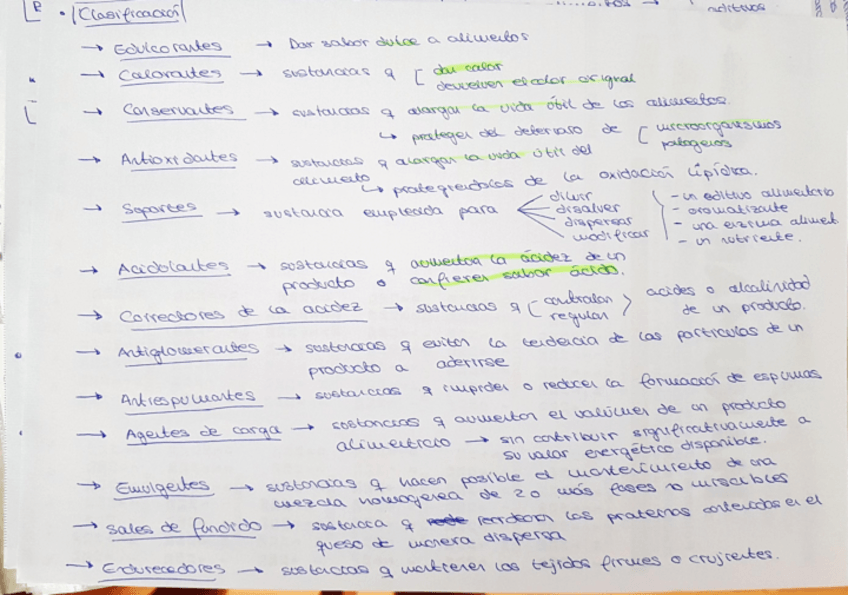 aditivos
• Clasificación
→ Edulcorantes → Dar sabor dulce a alimentos
→ Colorantes → sustancias q [ dan color
devuelven el color original
→ Conservantes → sustancias q alargan la vida útil de los alimentos.
↳ protegen del deterioro de [ microorganismos
patógenos
→ Antioxidantes → sustancias q alargan la vida útil del
alimento
↳ protegiendolos de la oxidación lipídica.
→ Soportes → sustancia empleada para
diluir
disolver
dispersar
modificar
- un aditivo alimentario
- aromatizante
- una enzima aliment
- un nutriente.
→ Acidulantes → sustancias q aumentan la ácidez de un
producto o confieren sabor ácido.
→ Correctores de la acidez → sustancias q [ controlan
regulan > acides o alcalinidad
de un producto.
→ Antiglomerantes → sustancias q evitan la tendencia de las particulas de un
producto a aderirse
→ Antiespumantes → sustancias q impiden o reducen la formación de espumas
→ Agentes de carga → sustancias q aumentan el volumen de un producto
alimenticio → sin contribuir significativamente a
su valor energético disponible.
→ Emulgentes → sustancias q hacen posible el mantenimiento de una
mezcla homogenea de 2 o más fases no miscibles
→ Sales de fundido → sustancia q reordenan las proteinas contenidas en el
queso de manera dispersa
→ Endurecedores → sustancias q mantienen los tejidos firmes o crujientes.